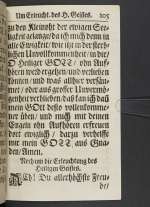 Um Erleucht. des H. Geistes. 205
zu den Kleinoht der ewigen See-
ligkeit gelange/da ich mich denn in
alle Ewigkeit/wie itzt in der sterb-
lichen Unvollkommenheit/in dir/
O Heiliger GOTT/ ohn Auff-
hören werd ergehen/und verlieben
können/ und was allhier versäu-
met/ oder aus grosser Unvermö-
genheit verblieben/das kan ich da
mein GOtt desto vollenkomme-
ner üben/ und mich mit deinen
Engeln ohn Auffhören erfreuen
der ewiglich/ darzu verhelffe
mir mein GOTT aus Gna-
den/ Amen.
Noch um die Erleuchtung des
Heiligen Geistes.
ACh! Du allerhöchste Freu-
de/